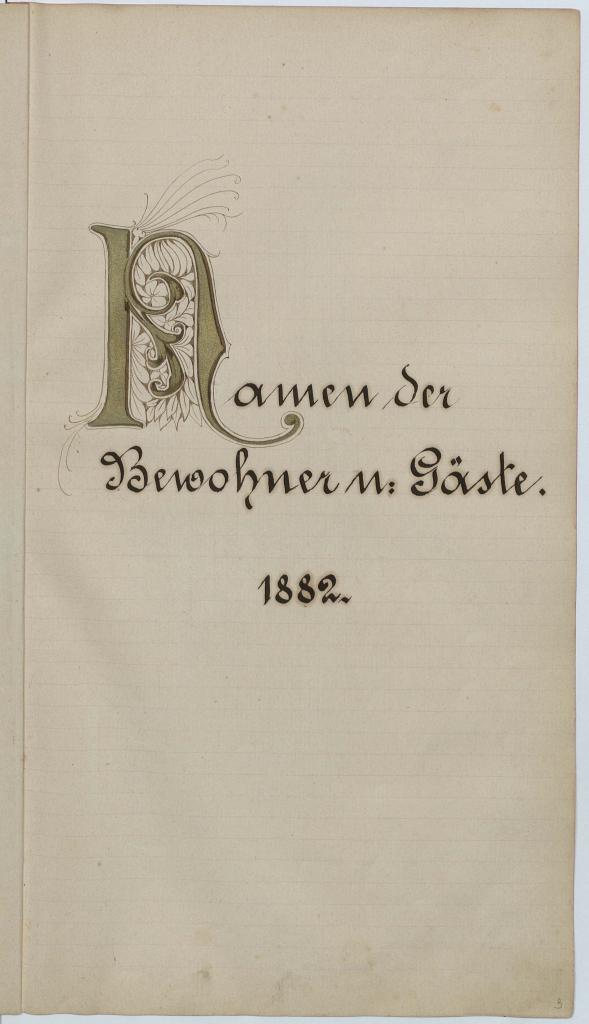 Namen der
Bewohner u: Gäste.
1882.
3